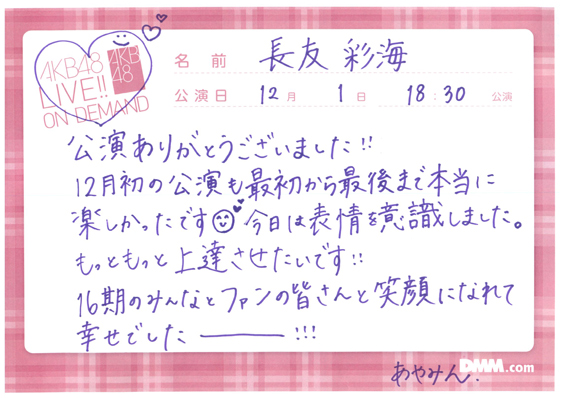 AKB48
LIVE!!
ON DEMAND
AKB
48
名前 長友 彩海
公演日 12月 1日 18:30 公演
公演ありがとうございました!!
12月初の公演も最初から最後まで本当に
楽しかったです 今日は表情を意識しました。
もっともっと上達させたいです!!
16期のみんなとファンの皆さんと笑顔になれて
幸せでした――!!!
あやみん.
DMM.com